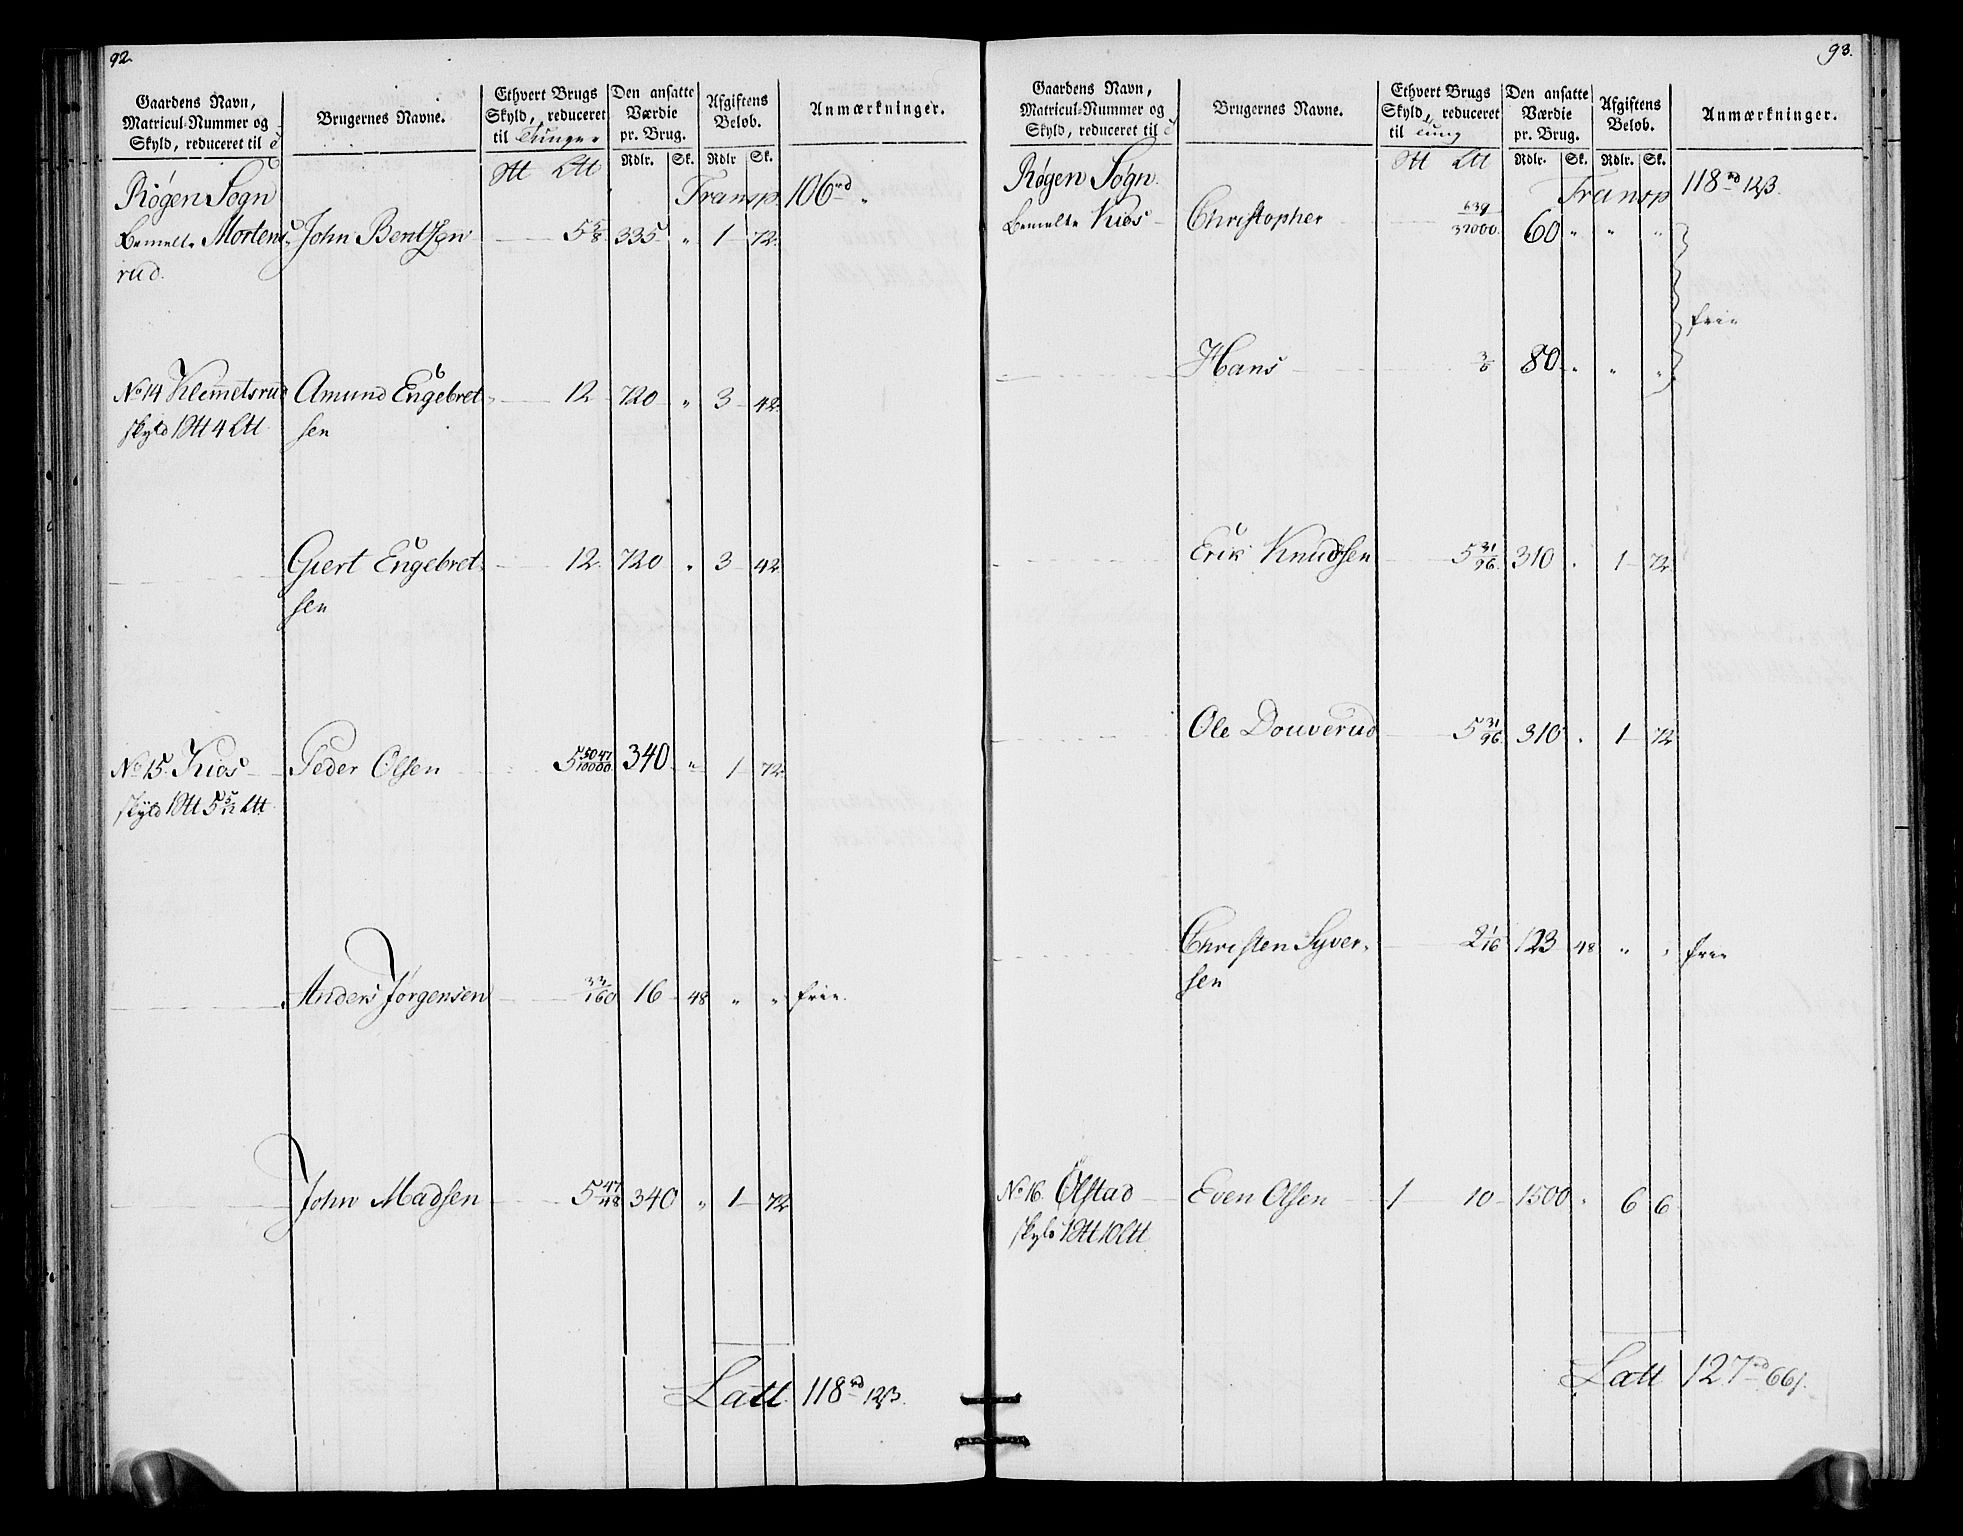 92.
Gaardens Navn,
Matricul-Nummer og
Skyld, reduceret til
Brugernes Navne.
Ethvert Brugs
Skyld, reduceret
til Tunge
Den ansatte
Værdie
pr. Brug.
Rdlr. Sk.
Afgiftens
Beløb.
Rdlr Sk.
Anmærkninger.
Røgen Sogn Transp. 106 rd "
bemelte Mortens John Bentsen 5 5/8 335 " 1 72
rud.
No 14 Klemetsrud Amund Engebret 12 720 " 3 42
skyld 1 4 sen
Giert Engebret 12. 720 " 3 42
sen
No 15. Kios Peder Olsen 5 5047/10000 340 " 1 72
skyld 1 5 5/12
Anders Jørgensen 33/160 16 48 " " frie.
John Madsen 5 47/48 340 " 1 72
Latt 118 rd 12 ß.
93.
Gaardens Navn,
Matricul-Nummer og
Skyld, reduceret til
Brugernes Navne.
Ethvert Brugs
Skyld, reduceret
til Tung
Den ansatte
Værdie
pr. Brug.
Rdlr. Sk.
Afgiftens
Beløb.
Rdlr. Sk.
Anmærkninger.
Røgen Sogn. Transp 118 rd 12 ß.
bemelte Kios Christopher 639/32000. 60 " " "
frie
Hans 80 " " "
Erik Knudsen 5 31/96. 310 " 1 72
Ole Douverud 5 31/96. 310 " 1 72
Christen Syver 2 1/16 123 48 " " frie
sen
No 16. Ølstad Even Olsen 1 10 1500 " 6 6
skyld 1 10
Latt 127 rd 66 ß.